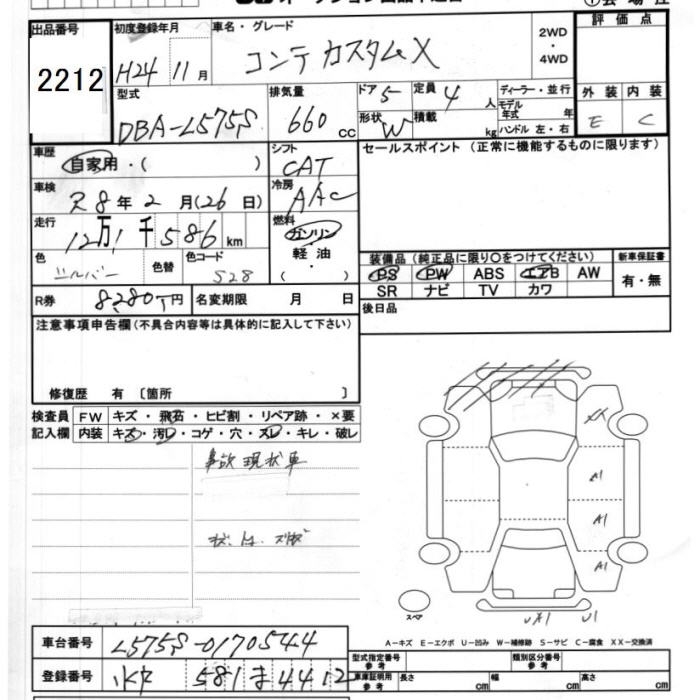 出品番号 初度登録年月 車名・グレード 2WD・4WD 評価点
2212 H24年11月 コンテ カスタムX
型式 排気量 ドア 5 定員 4人 ディーラー・並行 外装 内装
DBA-L575S 660cc 形状 W 積載 kg モデル年式 年 E C
ハンドル 左・右
車歴 シフト セールスポイント（正常に機能するものに限ります）
自家用・（ ） CAT
車検 冷房
R8年2月(26日) AAC
走行 燃料
12万1千586km ガソリン
色 色替 色コード 軽油・（ ） 装備品（純正品に限り○をつけてください） 新車保証書
シルバー S28 PS PW ABS エアB AW 有・無
R券 8280円 名変期限 月 日 SR ナビ TV カワ
後日品
注意事項申告欄（不具合内容等は具体的に記入して下さい）
修復歴 有〔箇所 〕
検査員 FW キズ・飛石・ヒビ割・リペア跡・×要
記入欄 内装 キズ・汚レ・コゲ・穴・スレ・キレ・破レ
事故現状車
XX
A1
A1
A1
スペア UA1 U1
A－キズ E－エクボ U－凹み W－補修跡 S－サビ C－腐食 XX－交換済
車台番号 L575S-0170544 型式指定番号 参考 類別区分番号 参考
登録番号 581 ま 4412 車庫証明用 参考 長さ cm 幅 cm 高さ cm